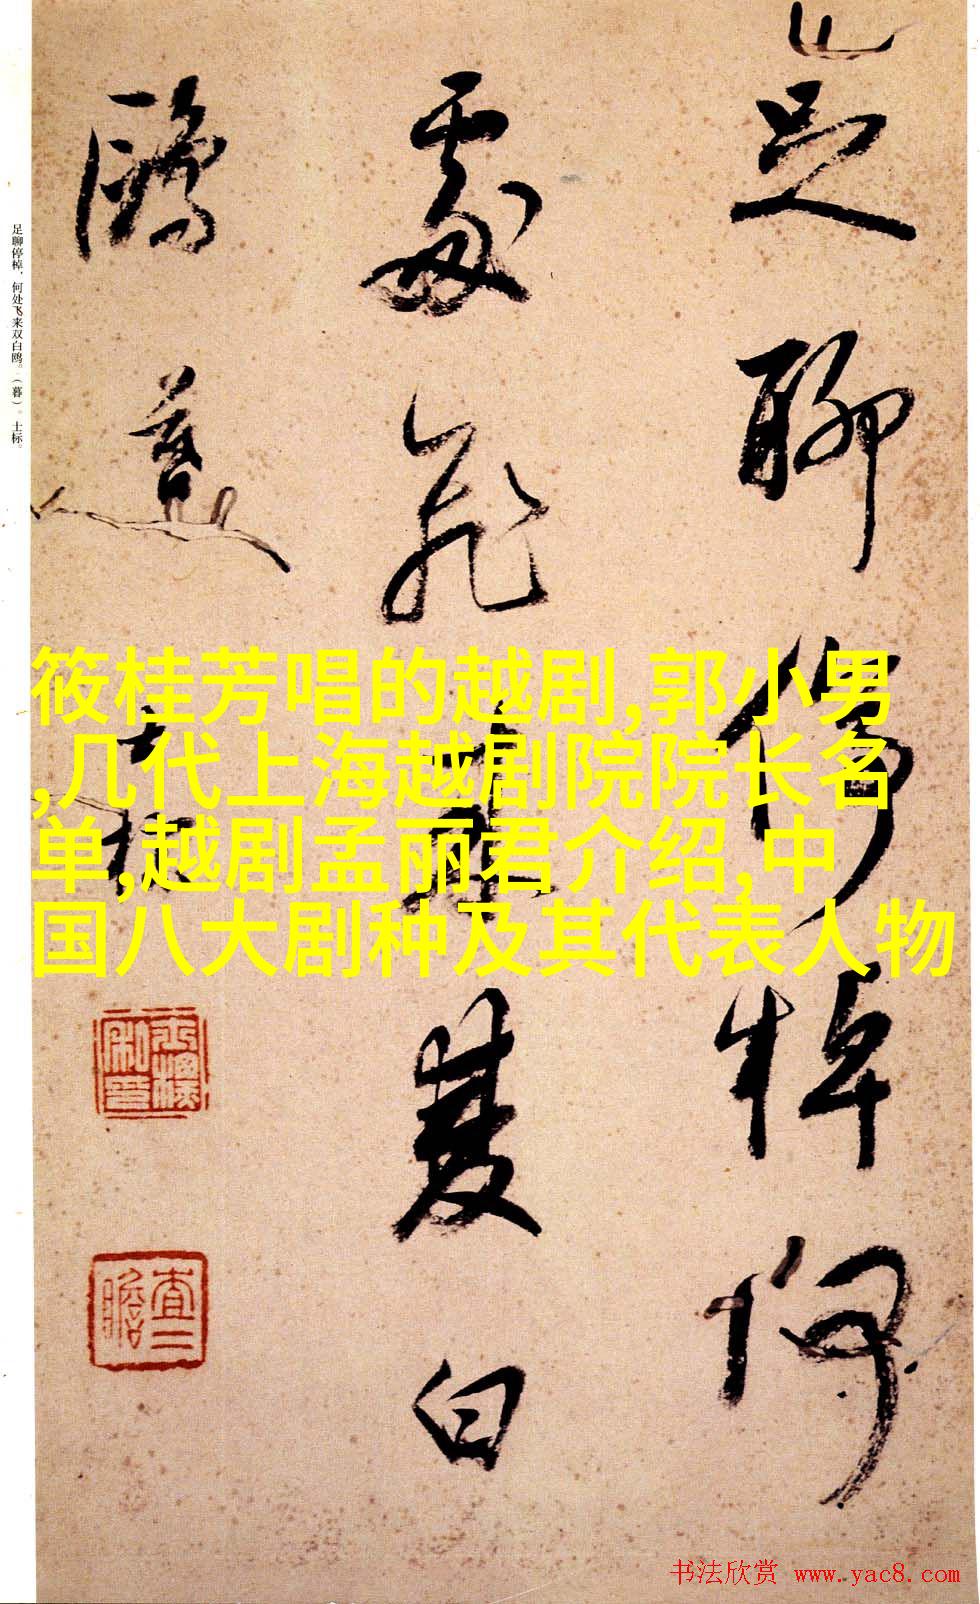 足聊停棹何
處飛來雙白
鷗暮
士标
足聊停棹，何处飞来双白鸥。（暮）。士标。
筱桂芳唱的越剧,郭小男
,几代上海越剧院院长名
单,越剧孟丽君介绍,中
国八大剧种及其代表人物
查二瞻
书法欣赏 www.yac8.com